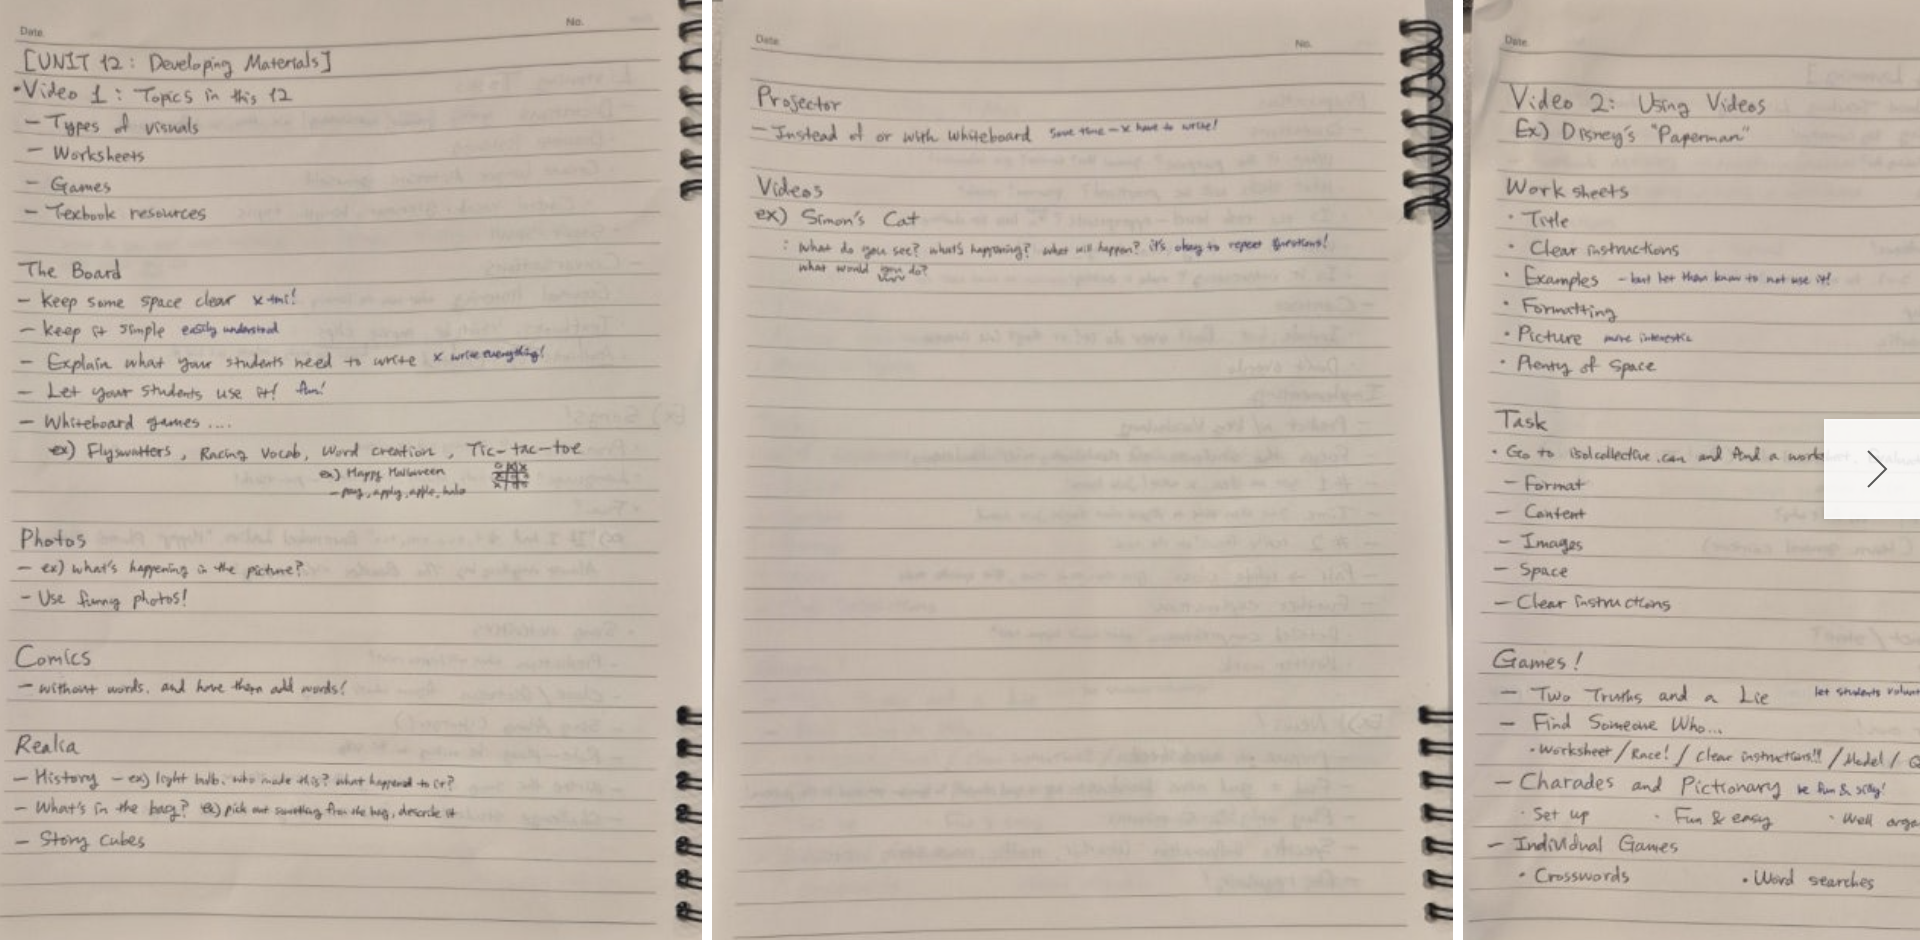 Date.
No.
[UNIT 12 : Developing Materials]
• Video 1 : Topics in this 12
- Types of visuals
- Worksheets
- Games
- Texbook resources
The Board
- Keep some space clear x tmi!
- Keep it simple easily understood
- Explain what your students need to write x write everything!
- Let your students use it! fun!
- Whiteboard games ....
ex) Flyswatters, Racing Vocab, Word creation, Tic-tac-toe
ex) Happy Halloween
- pay, apply, apple, halo
Photos
- ex) what's happening in the picture?
- Use funny photos!
Comics
- without words. and have them add words!
Realia
- History - ex) light bulb. who made this? what happened to it?
- What's in the bag? ex) pick out something from the bag, describe it
- Story cubes
Date.
No.
Projector
- Instead of or with whiteboard save time - x have to write!
Videos
ex) Simon's Cat
: What do you see? what's happening? what will happen? it's okay to repeat questions!
what would you do?
Date.
Video 2: Using Videos
Ex) Disney's "Paperman"
Work sheets
• Title
• Clear instructions
• Examples - but let them know to not use it!
• Formatting
• Picture more
• Plenty of Space
Task
• Go to islcollective.com and find a
- Format
- Content
- Images
- Space
- Clear instructions
Games!
- Two Truths and a Lie let students
- Find Someone Who...
• Worksheet / Race! / Clear instructions!! / Model /
- Charades and Pictionary be fun & silly!
• Set up • Fun & easy • Well
- Individual Games
• Crosswords • Word searches